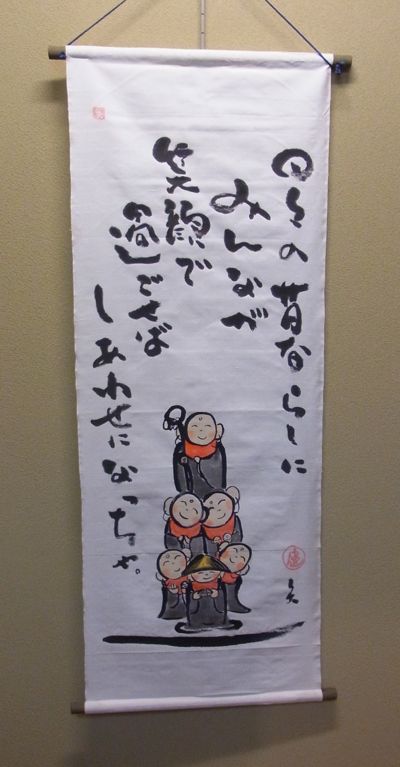 日々の暮らしに
みんなが
笑顔で
過ごせば
しあわせになっちゃ。